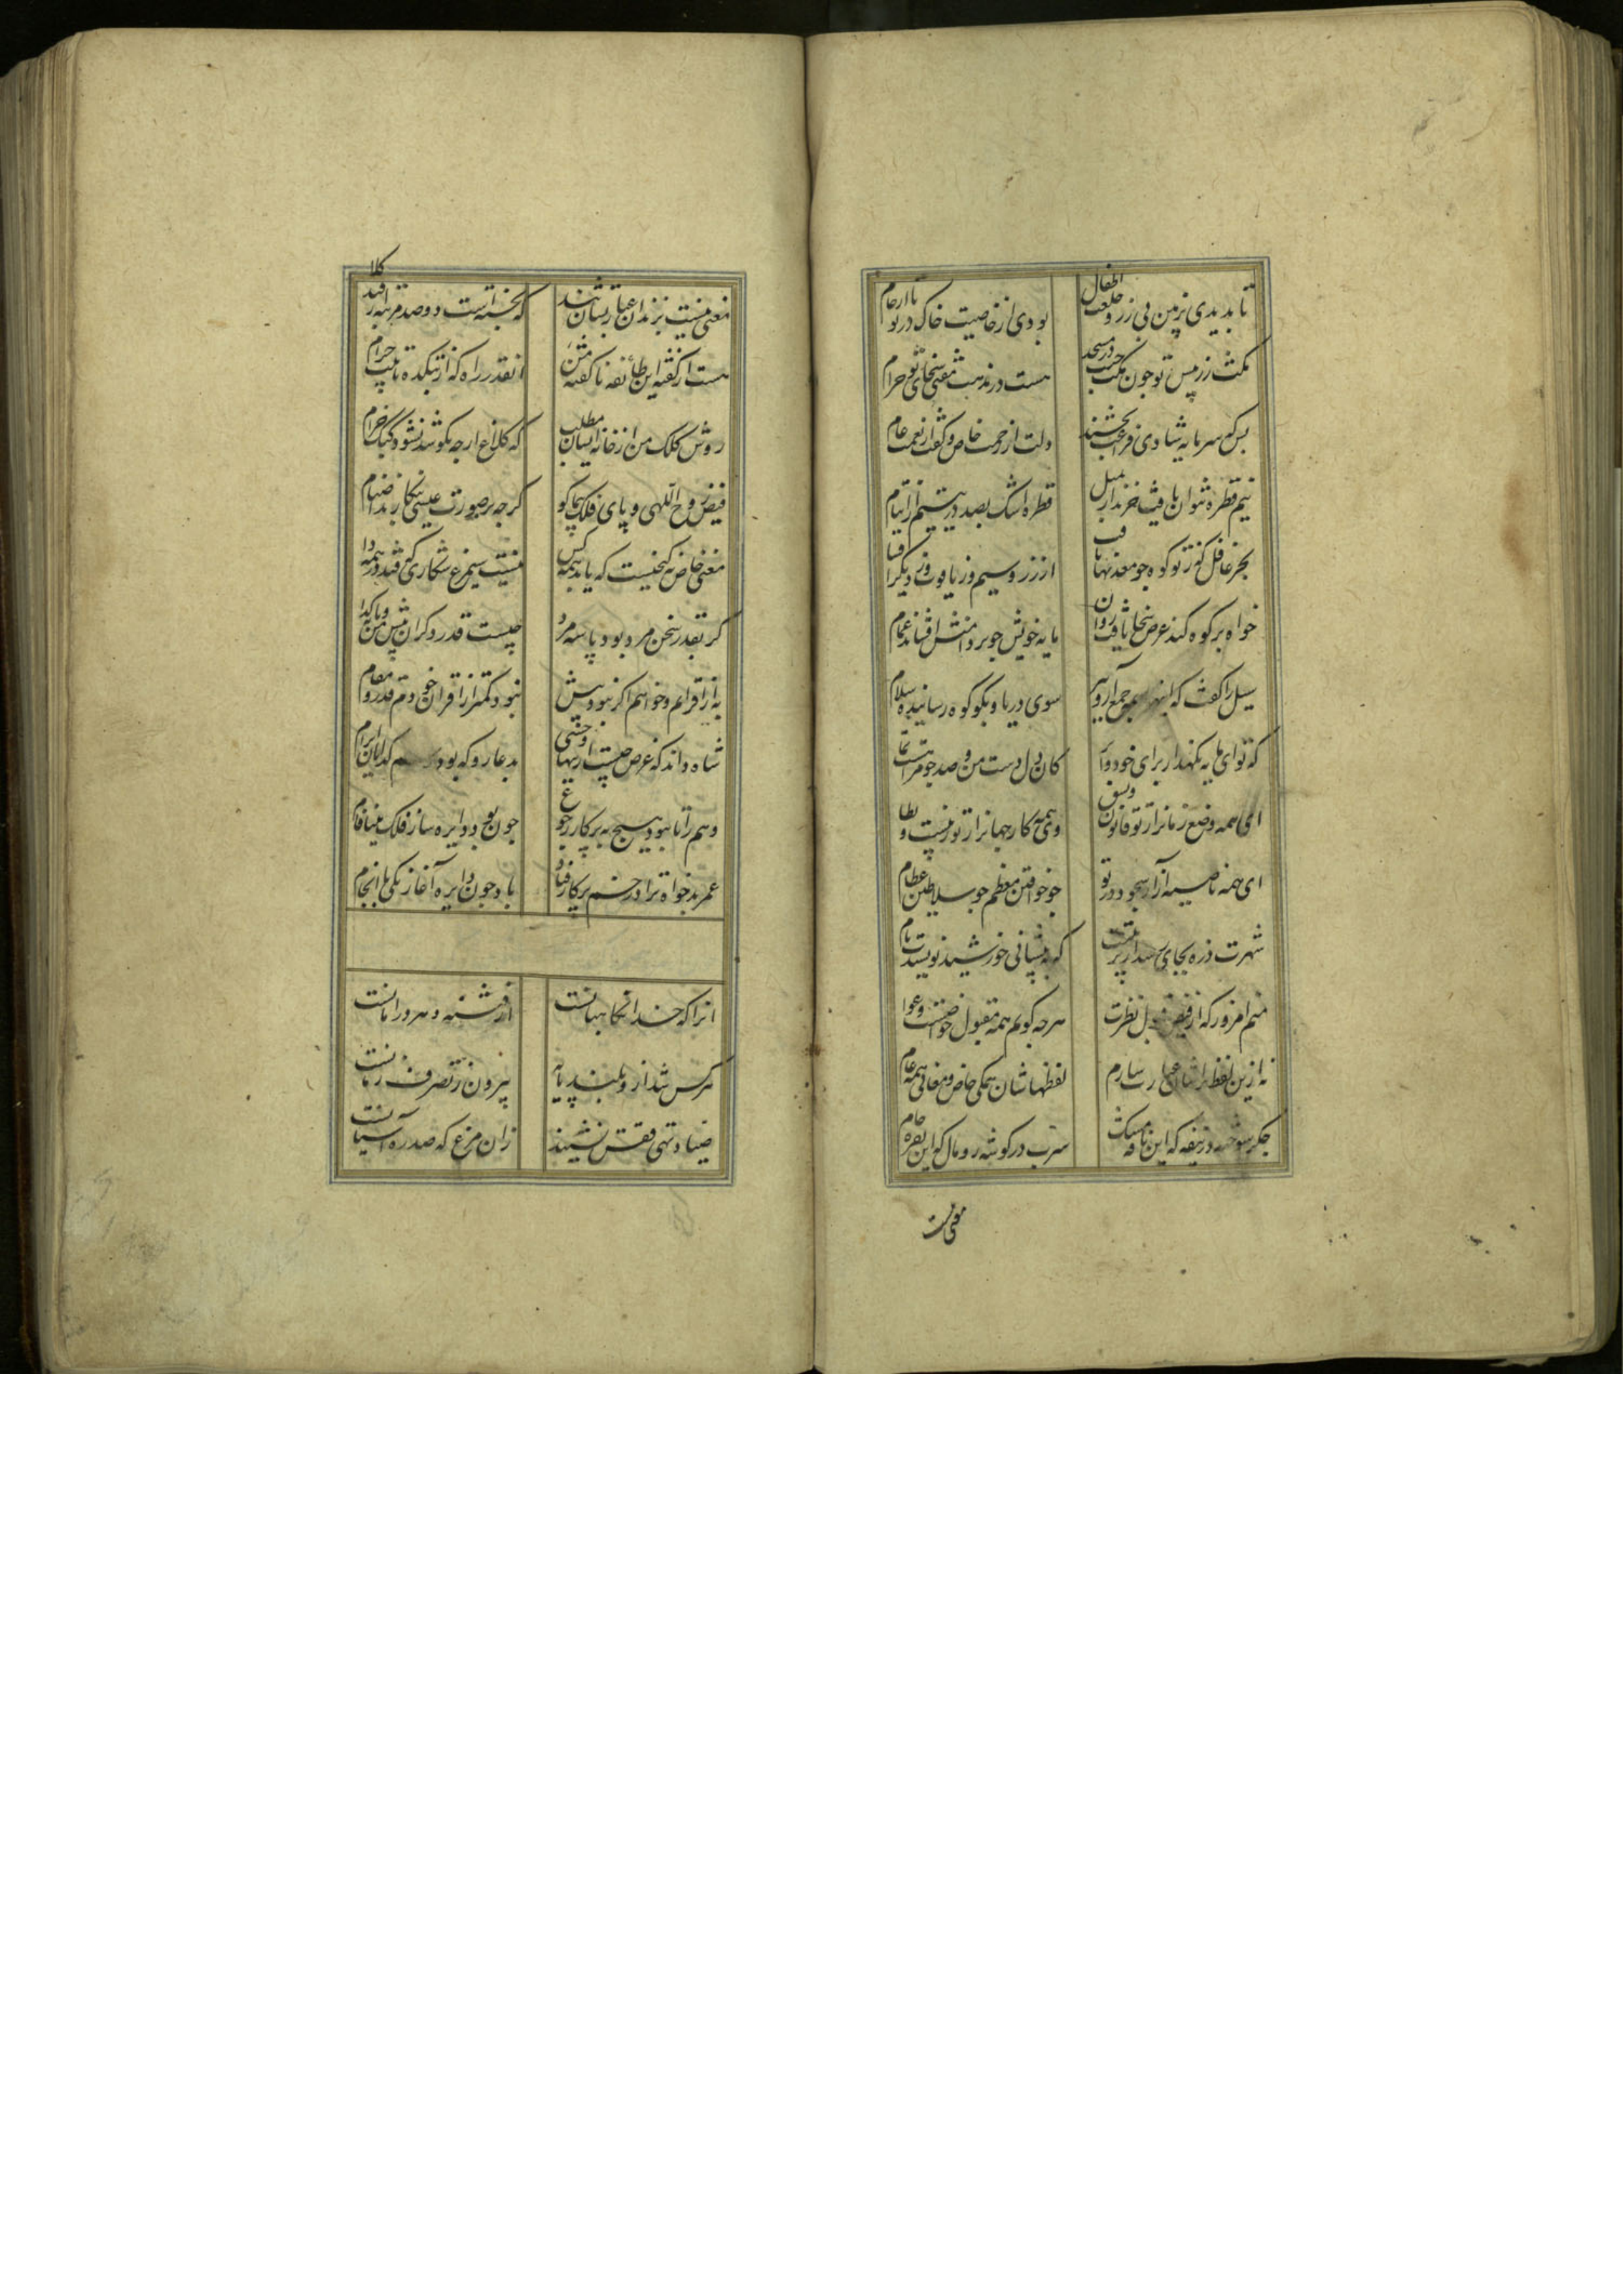 تا بدیدی زمین بی زر و خلعت اطفال
بودی از خاصیت خاک در تو با ارحام
مکث زر پیش تو چون مکث جنب در مسجد
هست در مذهب مفتی سخای تو حرام
بس که سرمایه شادی فرح بخشند
دلت از رحمت خاص و کفت از نعمت عام
نیم قطره نتوان یافت خریدار بمیل
قطره اشک بصد در یتیم از ایتام
خواه بر کوه کند عرض سخا یافت روان
مایه خویش چو بر دامنش افشاند غمام
سیل را گفت که اینها همه جمع آر و ببر
سوی دریا و بگو کوه رسانیده سلام
که تو ای مایه نگهدار برای خود و
کان دل و دست من و صد چو مرا
ای همه وضع زمانرا ز تو قانون و نسق
وی همه کار جهانرا ز تو ترتیب و نظام
ای همه ناصیه آرا بسجود در تو
چو خواقین معظم چو سلاطین عظام
شهرت ذره بجای رسد از تربیتت
که به پیشانی خورشید نویسندت نام
منم امروز که از فیض قبول نظرت
هرچه گویم همه مقبول خواصست و عوام
نه ازین لفظ تراشان عبارت سازم
لفظهاشان همگی خاص و معانی همه عام
جگر سوخته در نیفه که این نافه مشک
سرب در گوشه رومال که این نقره خام
معنی نیست
معنی نیست بزندان عبارت شانند
که بخسته است دو صد مرتبه
هست از گفته این طایفه تا گفته من
آنقدر راه که از بتکده تا بیت حرام
روش کلک من از خانه ایشان مطلب
که کلاغ ارچه بکوشد نشود کبک خرام
فیض روح اللهی و پای فلک پیما کو
گرچه بر صورت عیسی بنگارند اصنام
معنی خاص نه گنجیست که یابد همه کس
نیست سیمرغ شکاری که فتد در همه دام
گر بقدر سخن مرد بود پایه مرد
چیست قدر دگران پیش من و پایه کدام
به ز اقرانم و خواهم اگر نبود بیش
نبود کمتر از اقران خودم قدر و مقام
شاه داند که غرض چیست ازینها وحشی
بدعا رو که بود رسم گدایان ابرام
وهم را تا نبود هیچ به پرکار رجوع
چون بود دایره ساز فلک مینافام
عمر بدخواه ترا در خم پرکار فنا
باد چون دایره آغاز یکی با انجام
آنرا که خدا نگاهبانست
از فتنه دهر در امانست
هر کس شد ازو بلند پایه
بیرون ز تصرف زمانست
صیاد تهی قفس نشیند
زان مرغ که صدره آشیانست